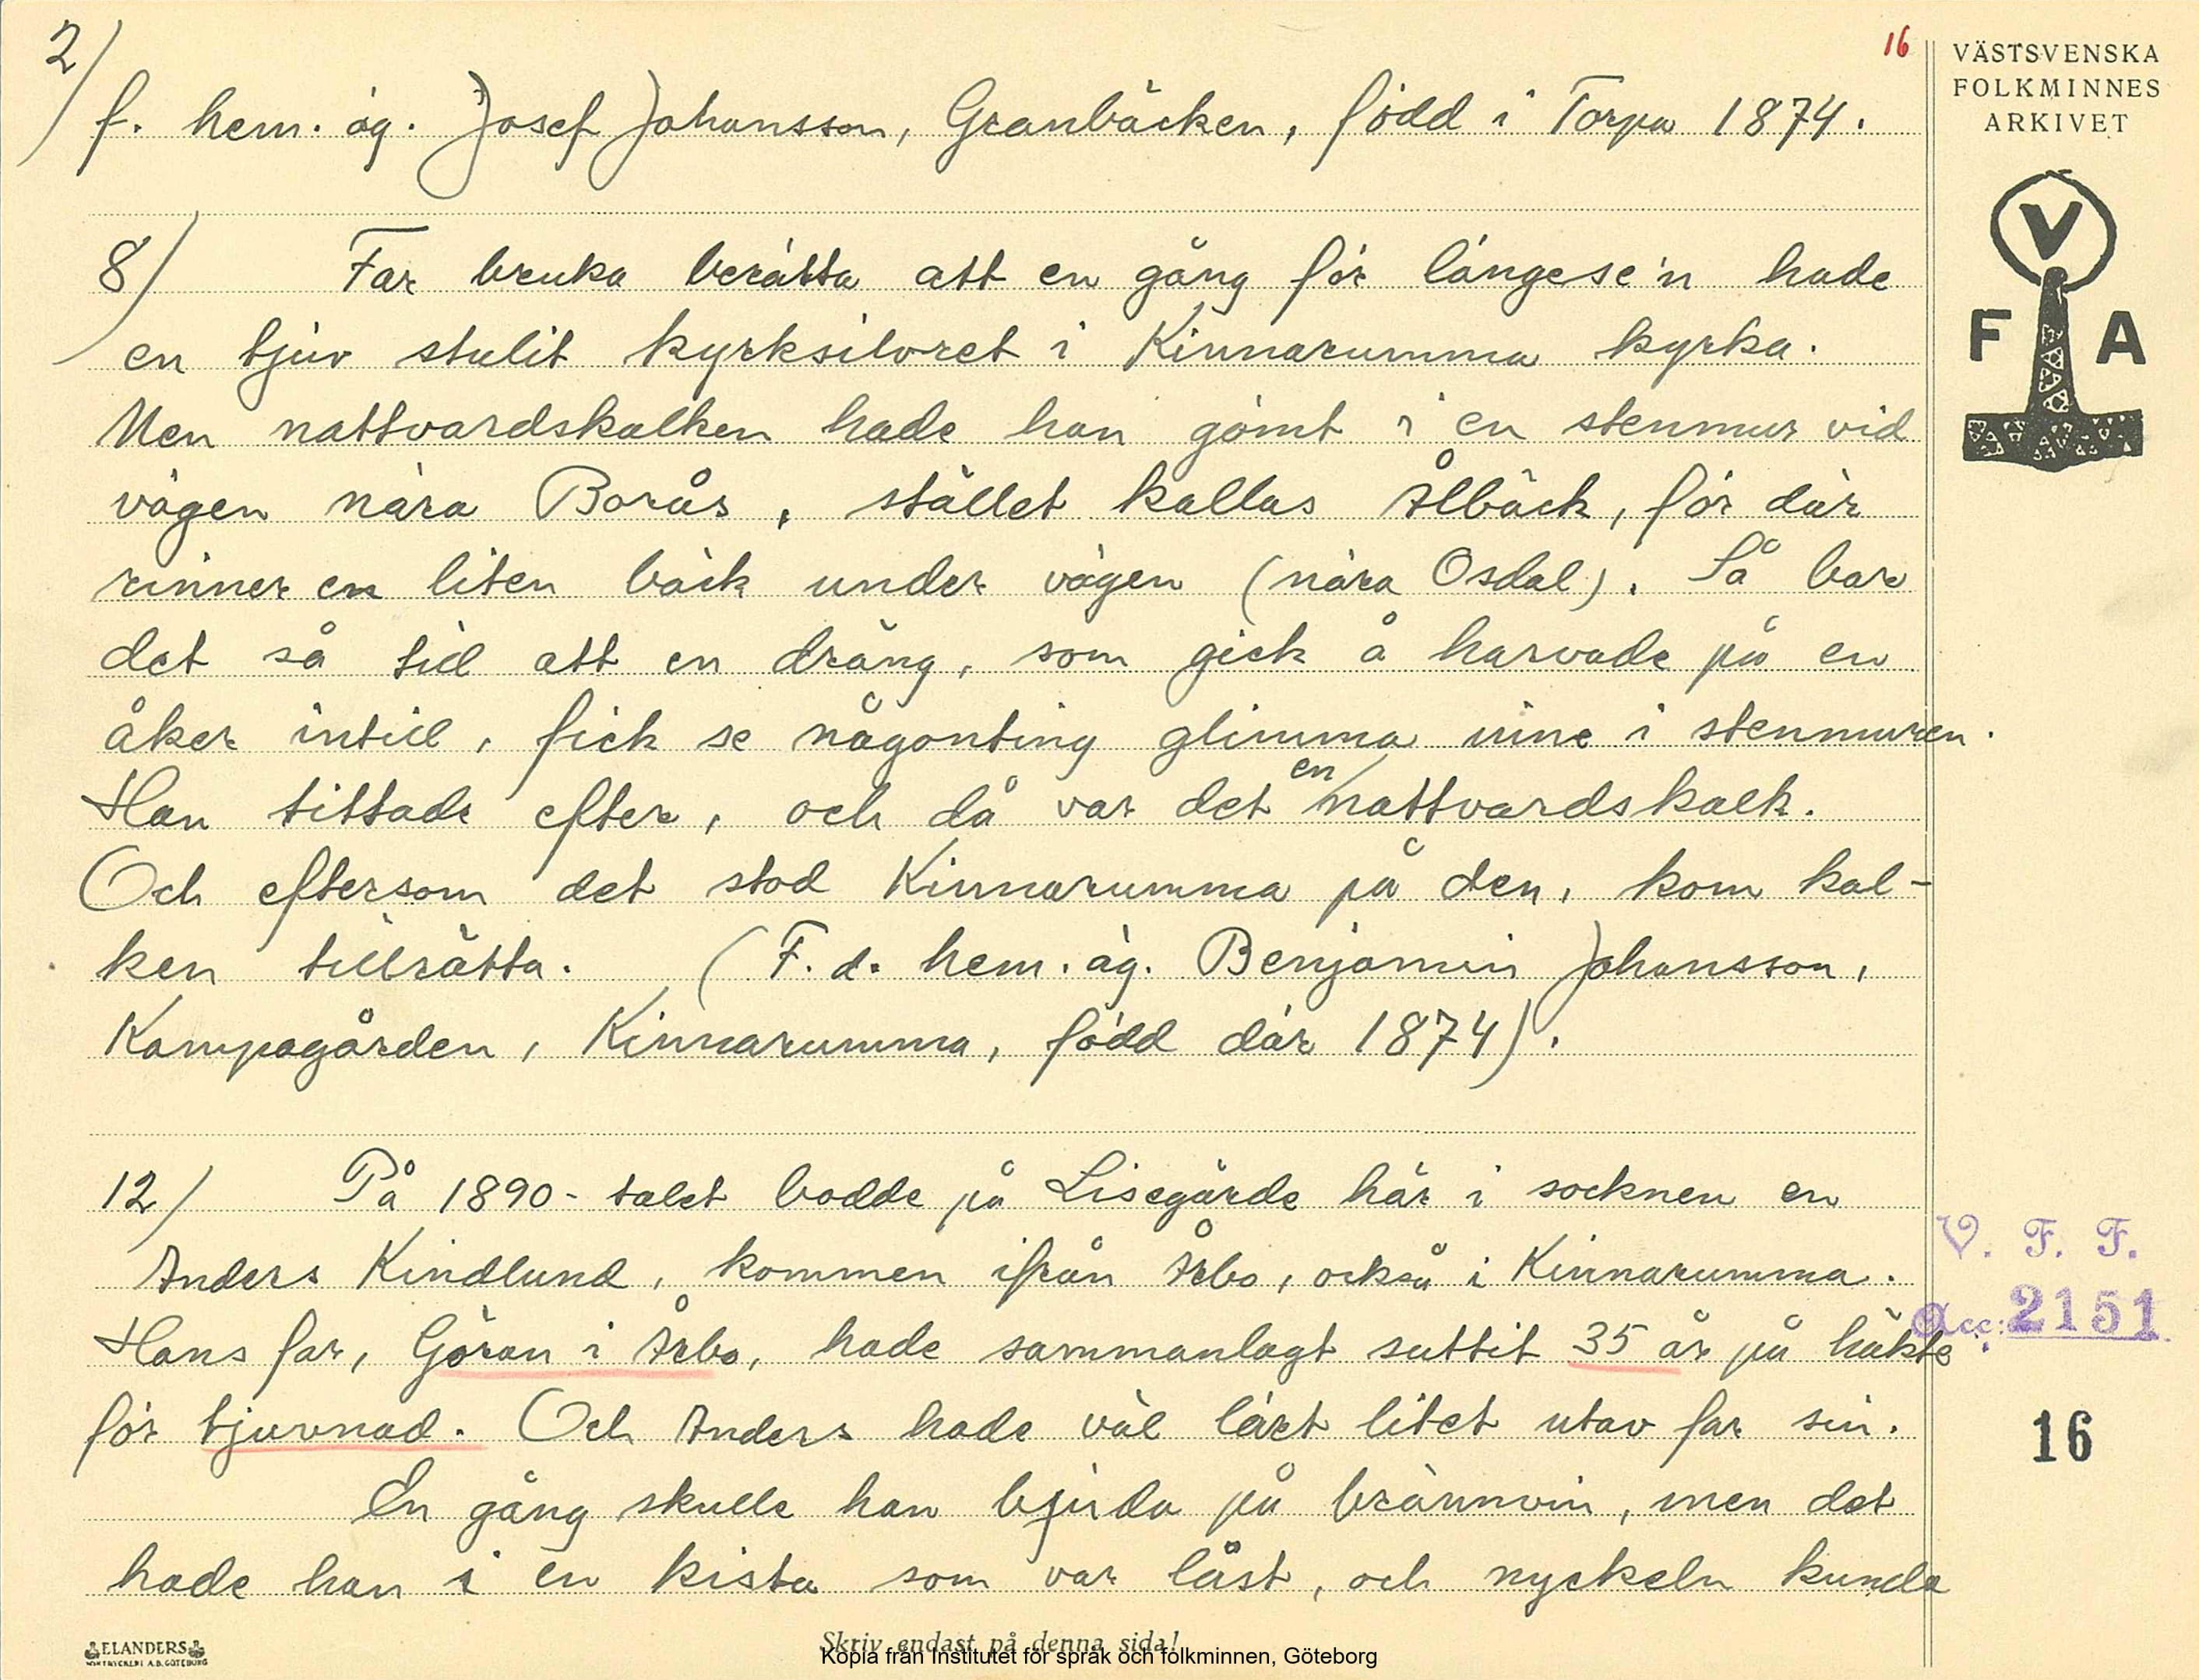 2/
16
f. hem. äg. Josef Johansson, Granbäcken, född i Torpa 1874.
8/ Far bruka berätta att en gång för längese'n hade
en tjuv stulit kyrksilvret i Kinnarumma kyrka.
Men nattvardskalken hade han gömt i en stenmur vid
vägen nära Borås, stället kallas Ålbäck, för där
rinner en liten bäck under vägen (nära Osdal). Så bar
det så till att en dräng, som gick å harvade på en
åker intill, fick se någonting glimma inne i stenmuren.
Han tittade efter, och då var det en nattvardskalk.
Och eftersom det stod Kinnarumma på den, kom kal-
ken tillrätta. (F. d. hem. äg. Benjamin Johansson,
Kampagården, Kinnarumma, född där 1874).
12/ På 1890-talet bodde på Lisegärde här i socknen en
Anders Kindlund, kommen ifrån Årbo, också i Kinnarumma.
Hans far, Göran i Årbo, hade sammanlagt suttit 35 år på häkte
för tjuvnad. Och Anders hade väl lärt litet utav far sin.
En gång skulle han bjuda på brännvin, men det
hade han i en kista som var låst, och nyckeln kunde
VÄSTSVENSKA
FOLKMINNES
ARKIVET
V
F A
V. F. F.
Acc: 2151
16
ELANDERS
BOKTRYCKERI A.B. GÖTEBORG
Skriv endast på denna sida!
Kopia från Institutet för språk och folkminnen, Göteborg